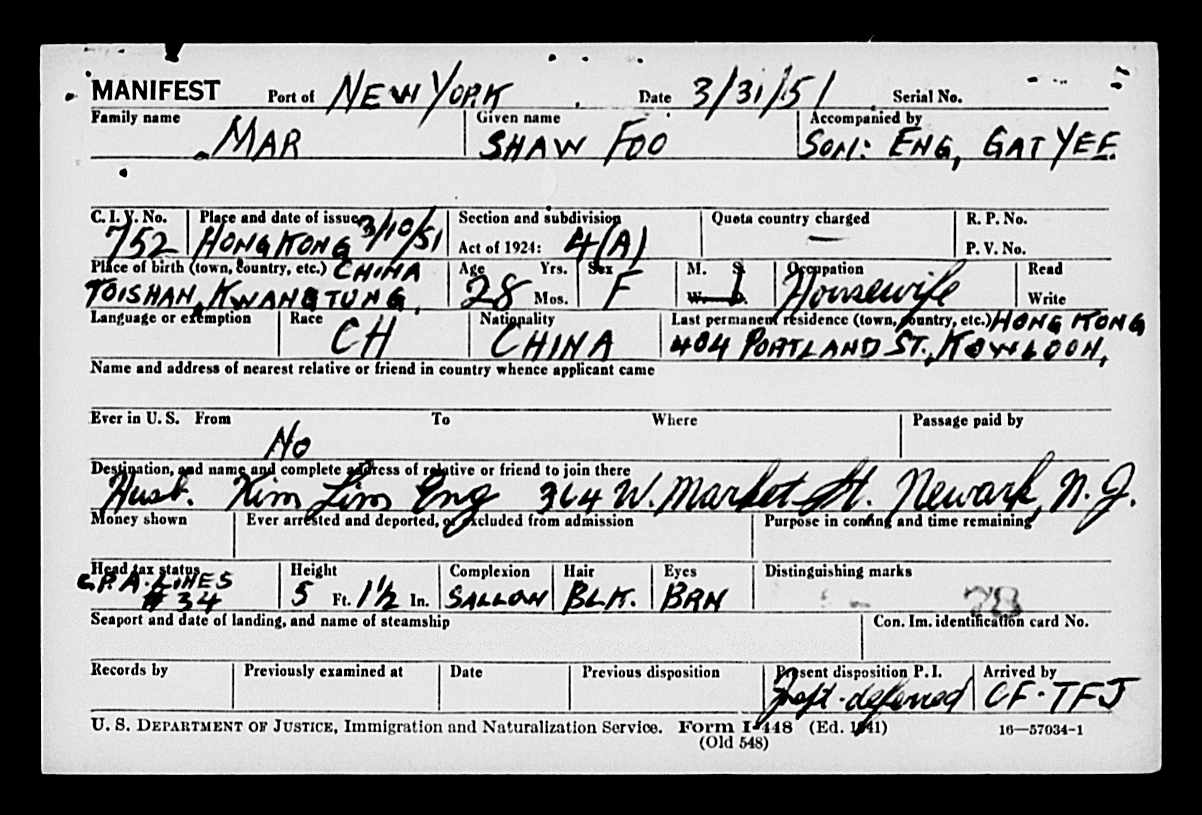 MANIFEST Port of NEW YORK Date 3/31/51 Serial No.
Family name Given name Accompanied by
MAR SHAW FOO SON: ENG, GAT YEE.
C. I. V. No. Place and date of issue 3/10/51 Section and subdivision Quota country charged R. P. No.
752 HONG KONG Act of 1924: 4(A) — P. V. No.
Place of birth (town, country, etc.) CHINA Age Yrs. Sex M. S. Occupation Read
TOISHAN, KWANGTUNG, 28 Mos. F W. D. Housewife Write
Language or exemption Race Nationality Last permanent residence (town, country, etc.) HONG KONG
CH CHINA 404 PORTLAND ST., KOWLOON,
Name and address of nearest relative or friend in country whence applicant came
Ever in U. S. From To Where Passage paid by
No
Destination, and name and complete address of relative or friend to join there
Husb. Kim Lim Eng 364 W. Market St. Newark, N. J.
Money shown Ever arrested and deported, or excluded from admission Purpose in coming and time remaining
Head tax status Height Complexion Hair Eyes Distinguishing marks
C.P.A. LINES
# 34 5 Ft. 1½ In. SALLOW BLK. BRN 78
Seaport and date of landing, and name of steamship Con. Im. identification card No.
Records by Previously examined at Date Previous disposition Present disposition P. I. Arrived by
deferred CF-TFJ
U. S. DEPARTMENT OF JUSTICE, Immigration and Naturalization Service. Form I-448 (Ed. 1941) 16—57034-1
(Old 548)